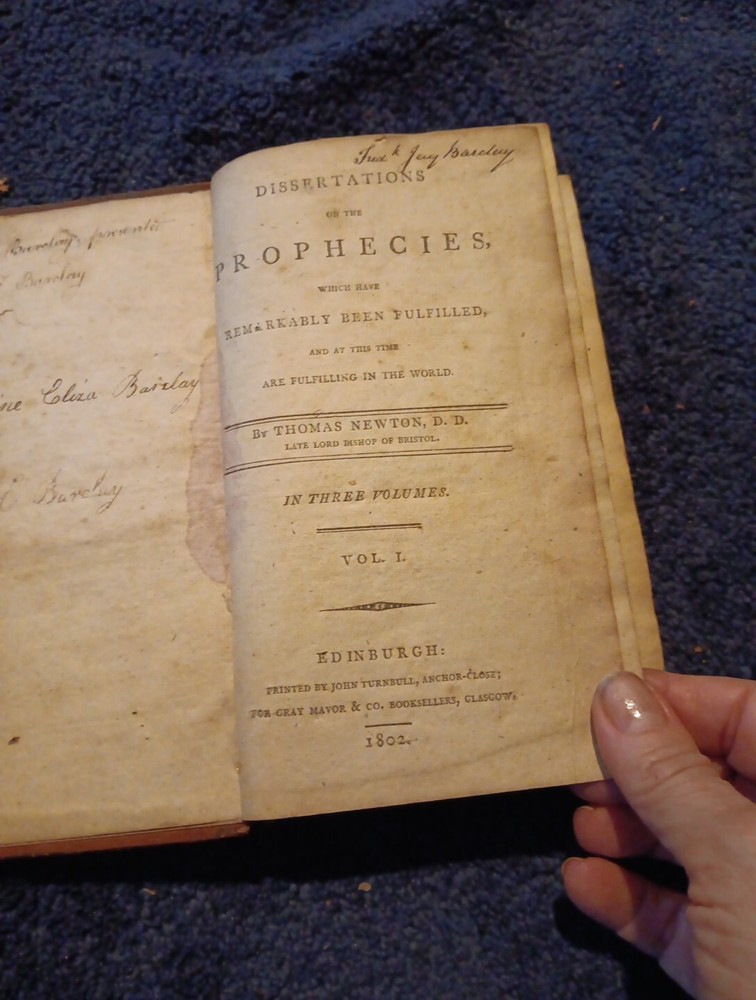 Barclay, presented
Barclay
Eliza Barclay
Barclay
Fredk Jay Barclay
DISSERTATIONS
ON THE
PROPHECIES,
WHICH HAVE
REMARKABLY BEEN FULFILLED,
AND AT THIS TIME
ARE FULFILLING IN THE WORLD.
By THOMAS NEWTON, D. D.
LATE LORD BISHOP OF BRISTOL.
IN THREE VOLUMES.
VOL. I.
EDINBURGH:
PRINTED BY JOHN TURNBULL, ANCHOR-CLOSE;
FOR GRAY MAVOR & CO. BOOKSELLERS, GLASGOW.
1802.